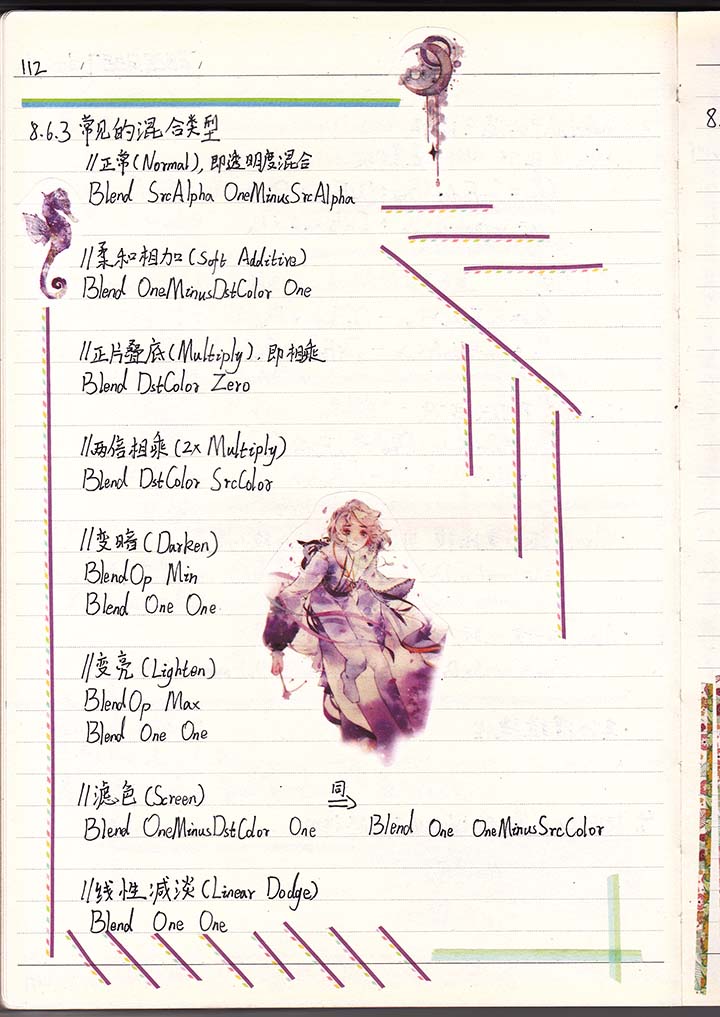 112
8.6.3 常见的混合类型
//正常(Normal), 即透明度混合
Blend SrcAlpha OneMinusSrcAlpha
//柔和相加(Soft Additive)
Blend OneMinusDstColor One
//正片叠底(Multiply), 即相乘
Blend DstColor Zero
//两倍相乘(2x Multiply)
Blend DstColor SrcColor
//变暗(Darken)
BlendOp Min
Blend One One
//变亮(Lighten)
BlendOp Max
Blend One One
//滤色(Screen)
同
Blend OneMinusDstColor One ⇒ Blend One OneMinusSrcColor
//线性减淡(Linear Dodge)
Blend One One
8.